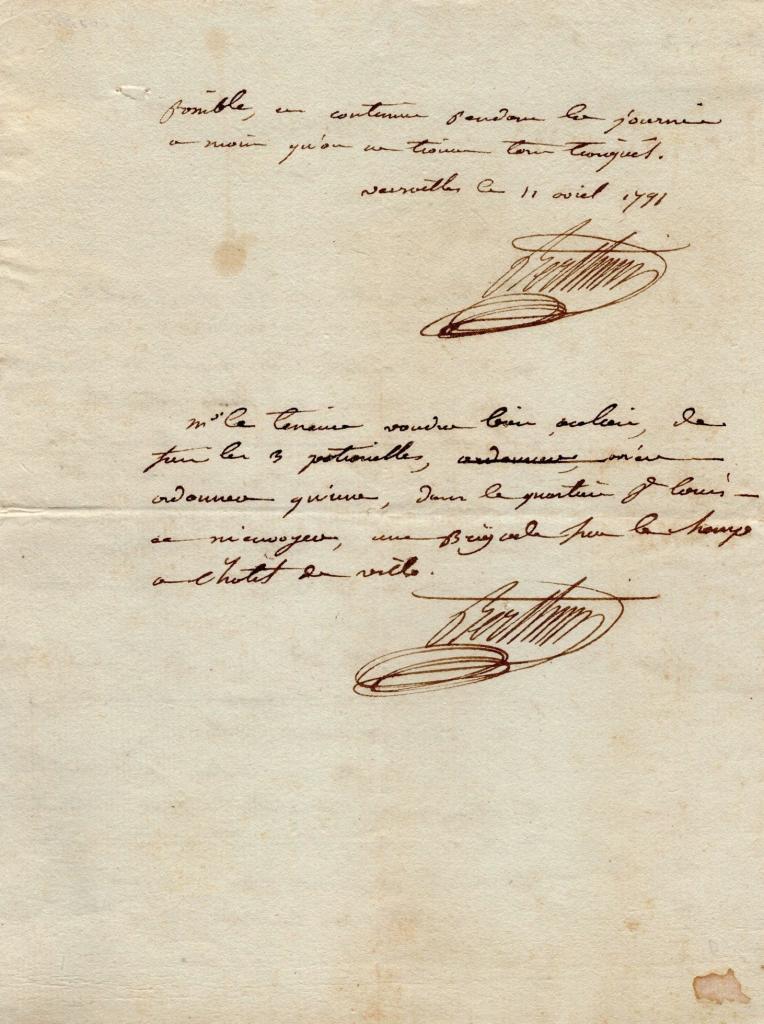 possible, et continuer pendant la journée
a moins qu'on ne trouve tout tranquil.
versailles le 11 avril 1791
Berthier
mr le veudra bien, de
sur les 3 patrouilles, ordonner, n'en
ordonner qu'une, dans le quartier st louis
et m'envoyer, une Brigade sur le champ
a l'hotel de ville.
Berthier